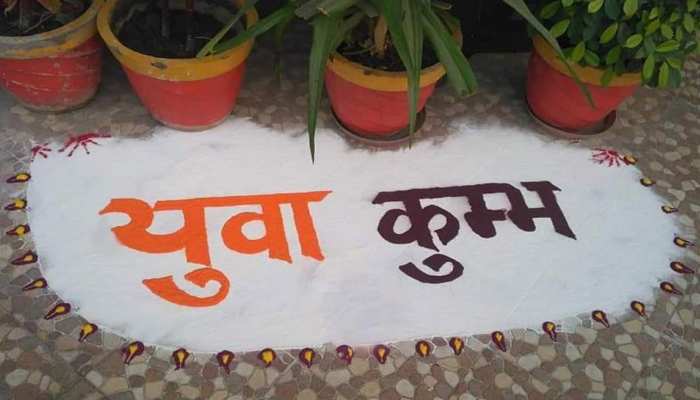 युवा कुम्भ